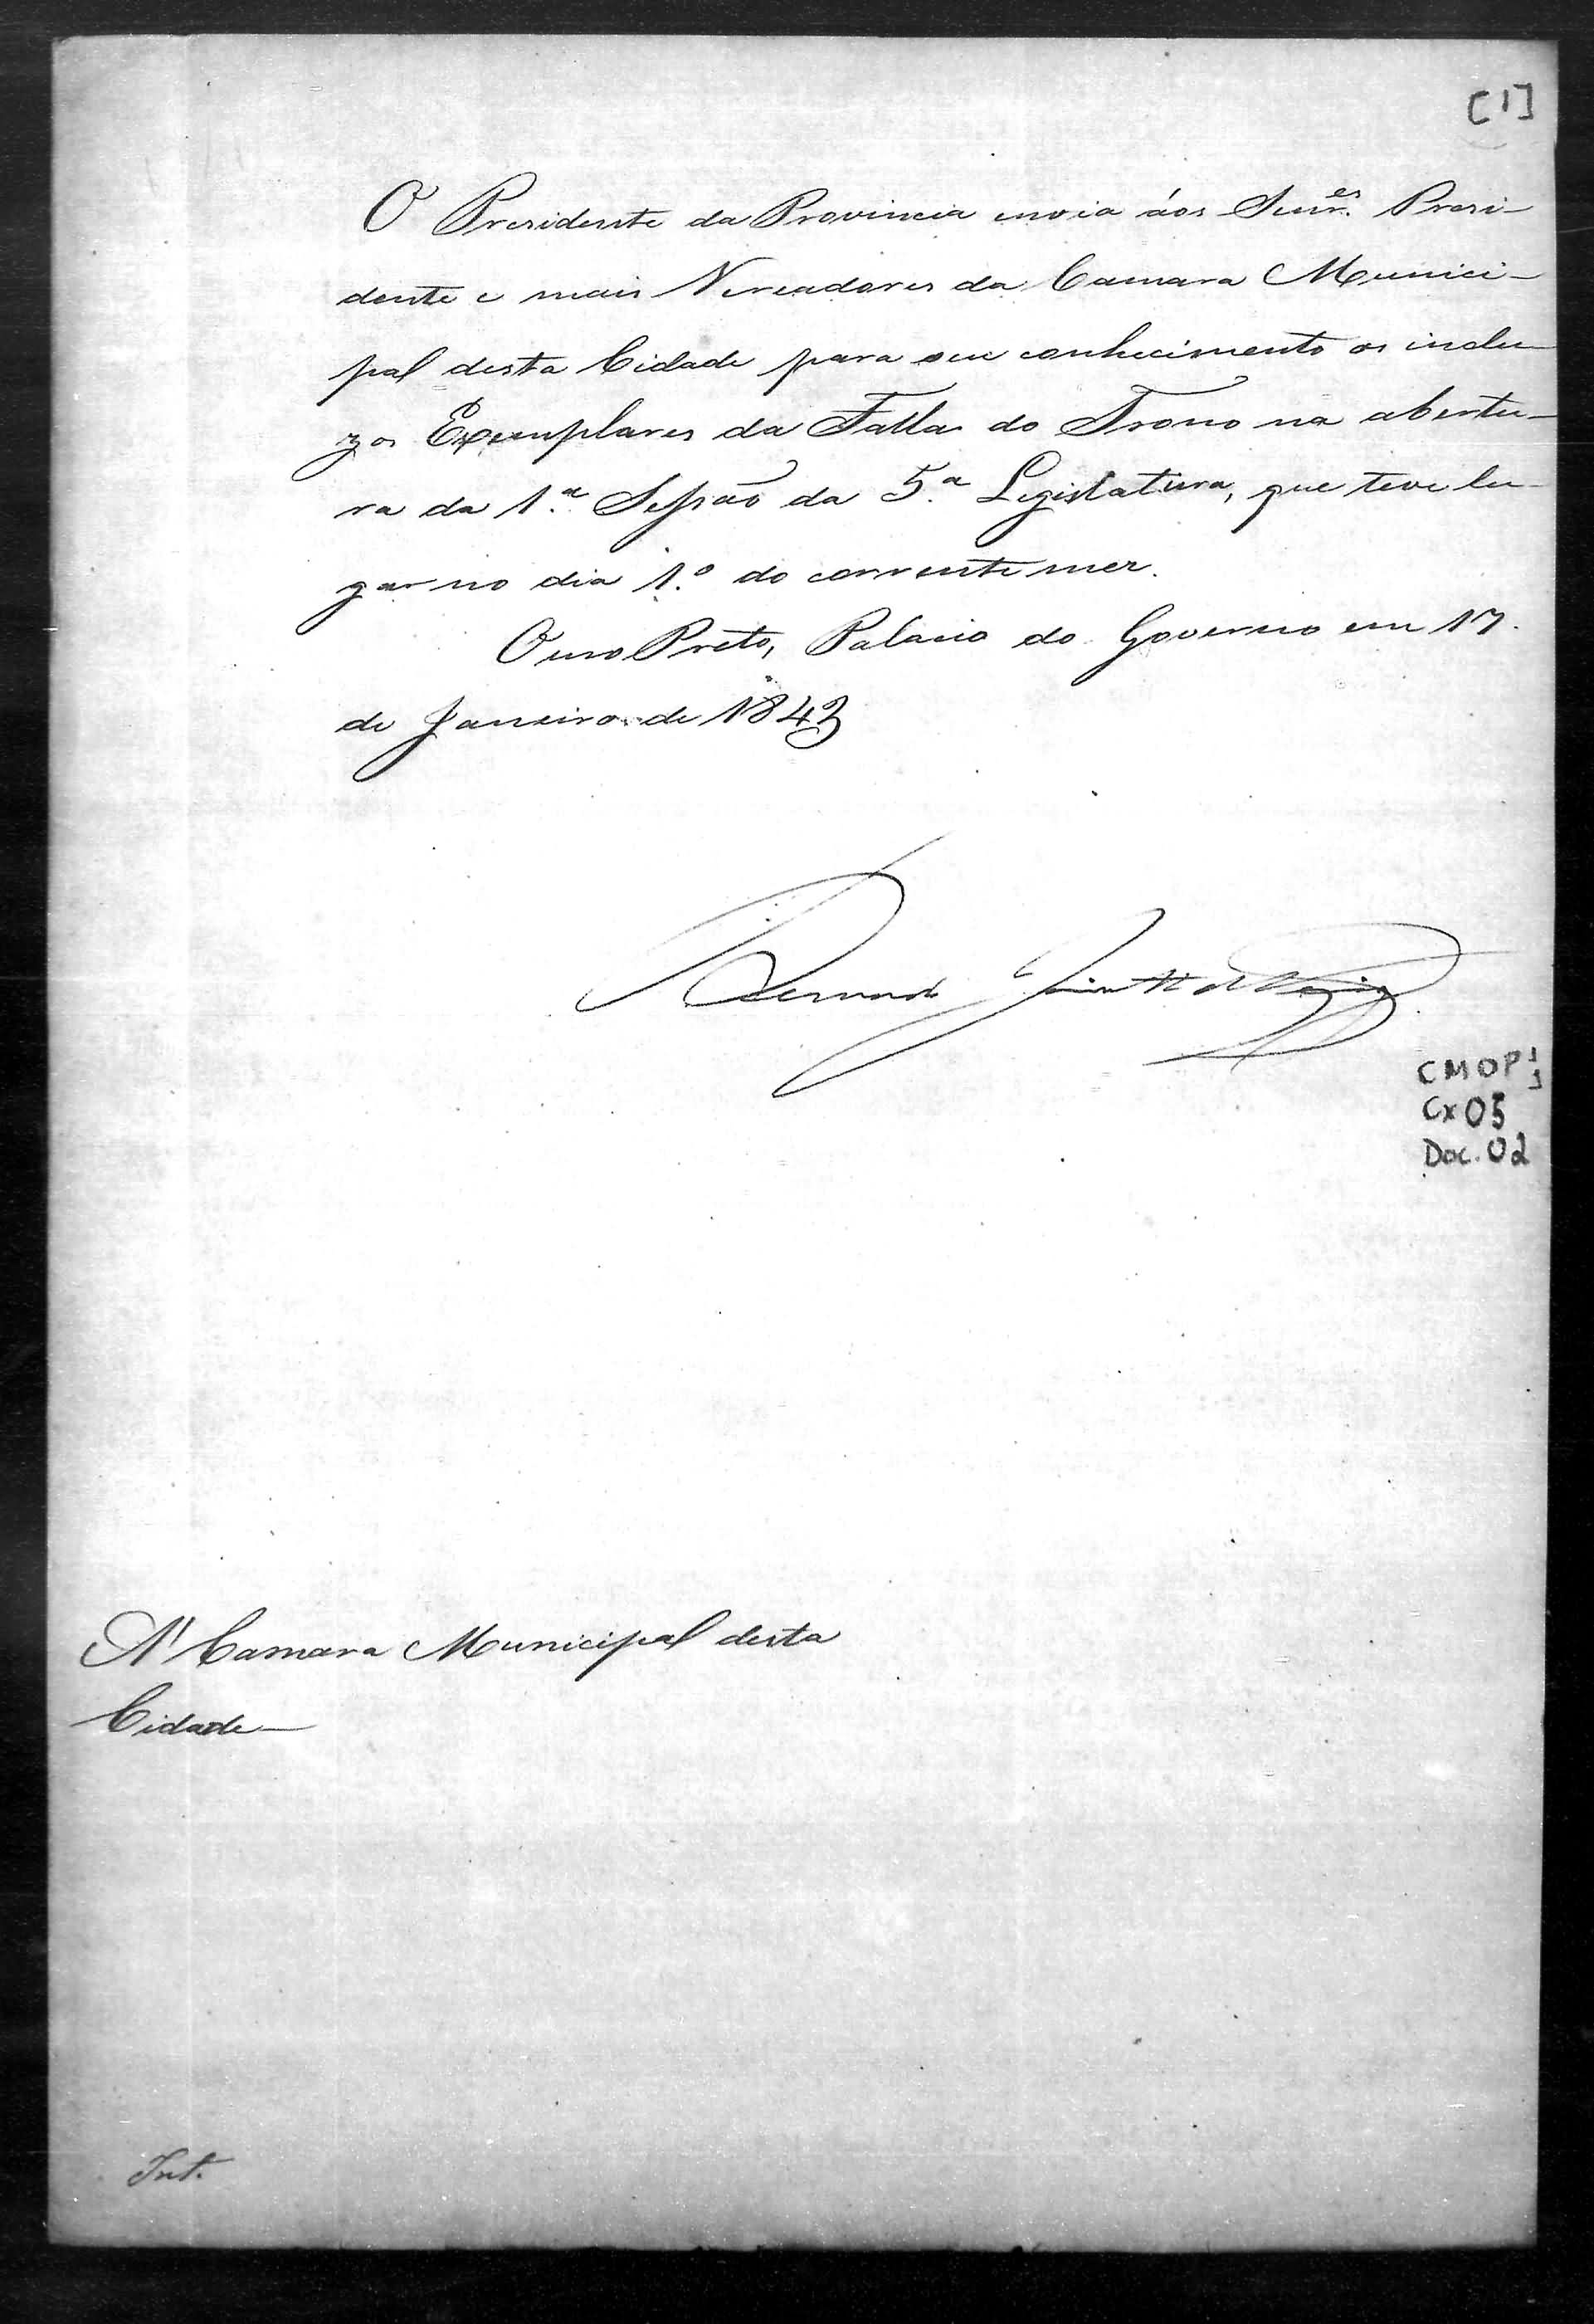 [1]
O Presidente da Provincia envia áos Senr.es Presi-
dente e mais Vereadores da Camara Munici-
pal desta Cidade para seu conhecimento os inclu-
zos Exemplares da Falla do Trono na abertu-
ra da 1.ª Sessão da 5.ª Legislatura, que teve lu-
gar no dia 1.º do corrente mez.
Ouro Preto, Palacio do Governo em 17.
de Janeiro de 1843
Bernardo Jacintho da Veiga
CMOP
Cx 05
Doc. 02
A' Camara Municipal desta
Cidade